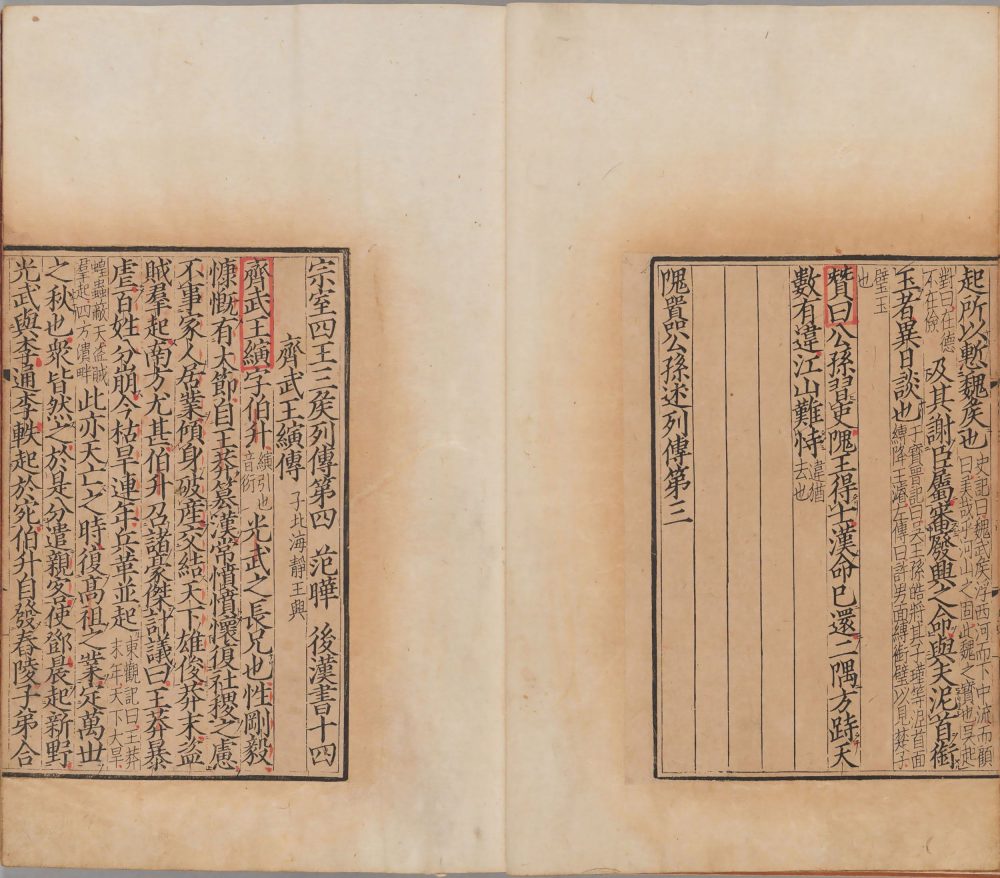 起所以慙魏矦也史記曰魏武矦浮西河而下中流而顧曰美哉乎河山之固此魏之寶也吳起
對曰在德不在險及其謝臣屬審廢興之命與夫泥首銜
玉者異日談也干寶晉記曰吳王孫皓將其子瑾等泥首面縛降王濬左傳曰許男面縛銜璧以見楚子
璧玉也
贊曰公孫習吏隗王得士漢命已還二隅方跱天
數有違江山難恃違猶去也
隗囂公孫述列傳第三
宗室四王三矦列傳第四 范曄 後漢書十四
齊武王縯傳 子北海靜王興
齊武王縯字伯升縯引也音衍光武之長兄也性剛毅
慷慨有大節自王莽篡漢常憤憤懷復社稷之慮
不事家人居業傾身破産交結天下雄俊莽末盜
賊羣起南方尤甚伯升召諸豪傑計議曰王莽暴
虐百姓分崩今枯旱連年兵革並起東觀記曰王莽末年天下大旱
蝗蟲蔽天盜賊羣起四方潰畔此亦天亡之時復高祖之業定萬世
之秋也衆皆然之於是分遣親客使鄧晨起新野
光武與李通李軼起於宛伯升自發舂陵子弟合